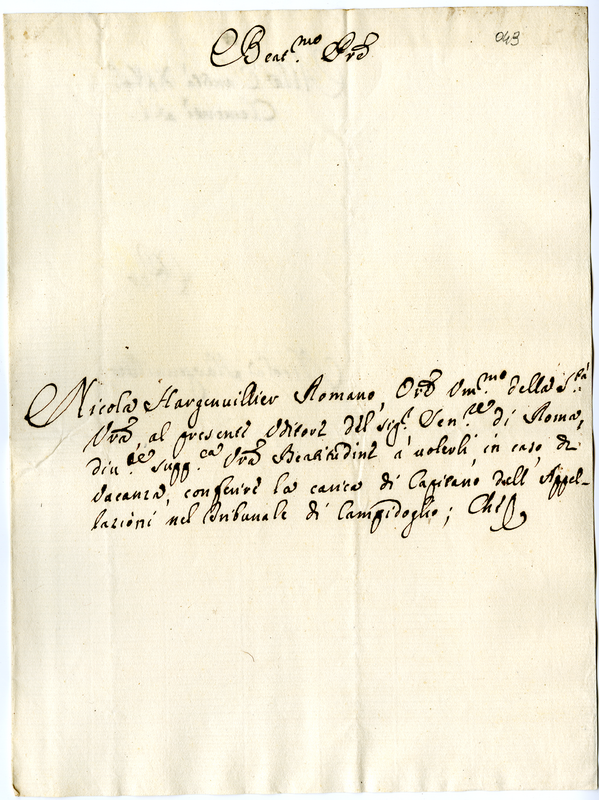 049
Beat.mo Prẽ
Nicola Hargenvillier Romano, Orẽ Um.mo della S.tà
Vrã, al presente Uditore del Sig.r Sen.re di Roma,
div.te supp.ca Vrã Beatitudine à volerli, in caso di
vacanza, conferire la carica di Capitano dell' Appel-
lazioni nel Tribunale di Campidoglio; Che